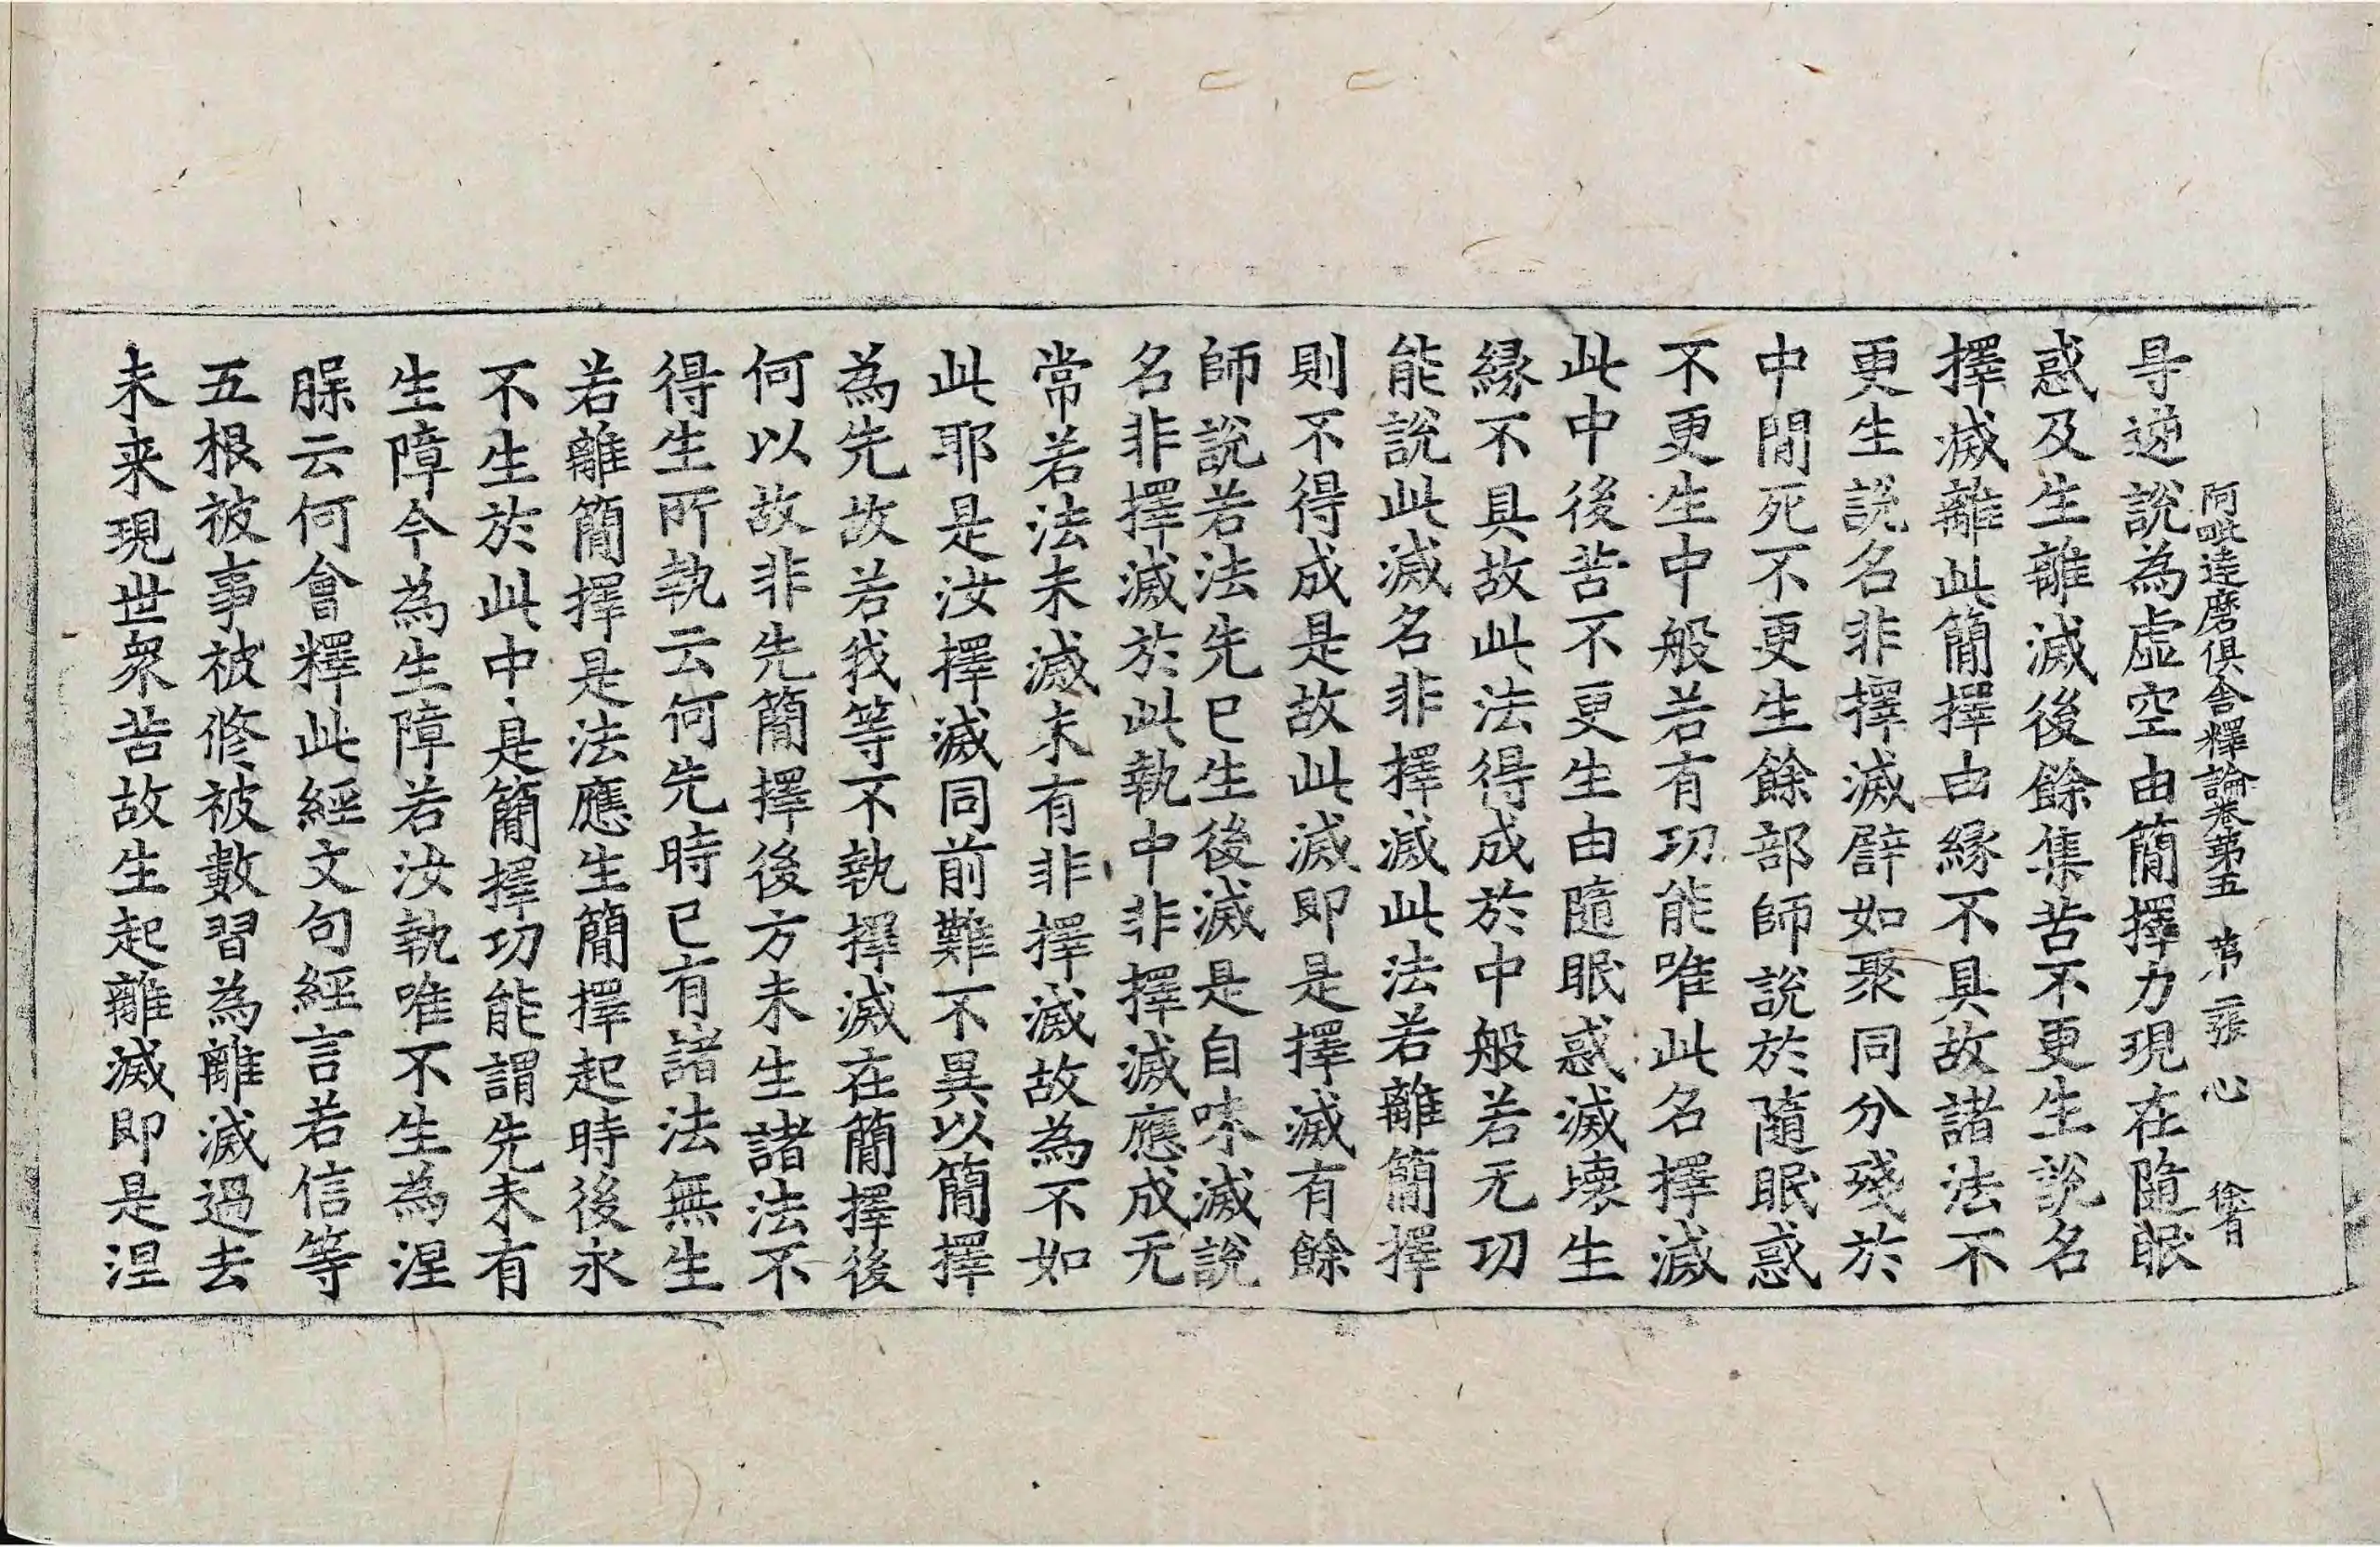 阿毗達磨俱舍釋論卷第五　第二張　心
㝵逆說為虛空由簡擇力現在隨眠
惑及生離滅後餘集苦不更生說名
擇滅離此簡擇由緣不具故諸法不
更生說名非擇滅譬如聚同分殘於
中間死不更生餘部師說於隨眠惑
不更生中般若有功能唯此名擇滅
此中後苦不更生由隨眠惑滅壞生
緣不具故此法得成於中般若无功
能說此滅名非擇滅此法若離簡擇
則不得成是故此滅即是擇滅有餘
師說若法先已生後滅是自味滅說
名非擇滅於此執中非擇滅應成无
常若法未滅未有非擇滅故為不如
此耶是汝擇滅同前難不異以簡擇
為先故若我等不執擇滅在簡擇後
何以故非先簡擇後方未生諸法不
得生所執云何先時已有諸法無生
若離簡擇是法應生簡擇起時後永
不生於此中是簡擇功能謂先未有
生障今為生障若汝執唯不生為涅
槃云何會釋此經文句經言若信等
五根被事被修被數習為離滅過去
未来現世眾苦故生起離滅即是涅